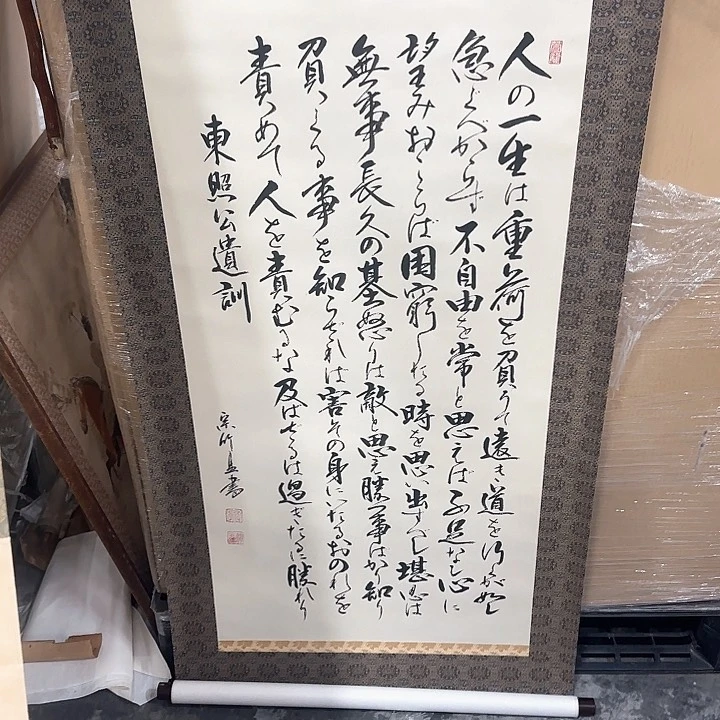 人の一生は重荷を負うて遠き道を行くが如し
急ぐべからず不自由を常と思えば不足なし心に
望みおこらば困窮したる時を思い出すべし堪忍は
無事長久の基怒りは敵と思え勝つ事ばかり知り
負くる事を知らざれば害その身にいたるおのれを
責めて人を責むるな及ばざるは過ぎたるに勝れり
東照公遺訓
書